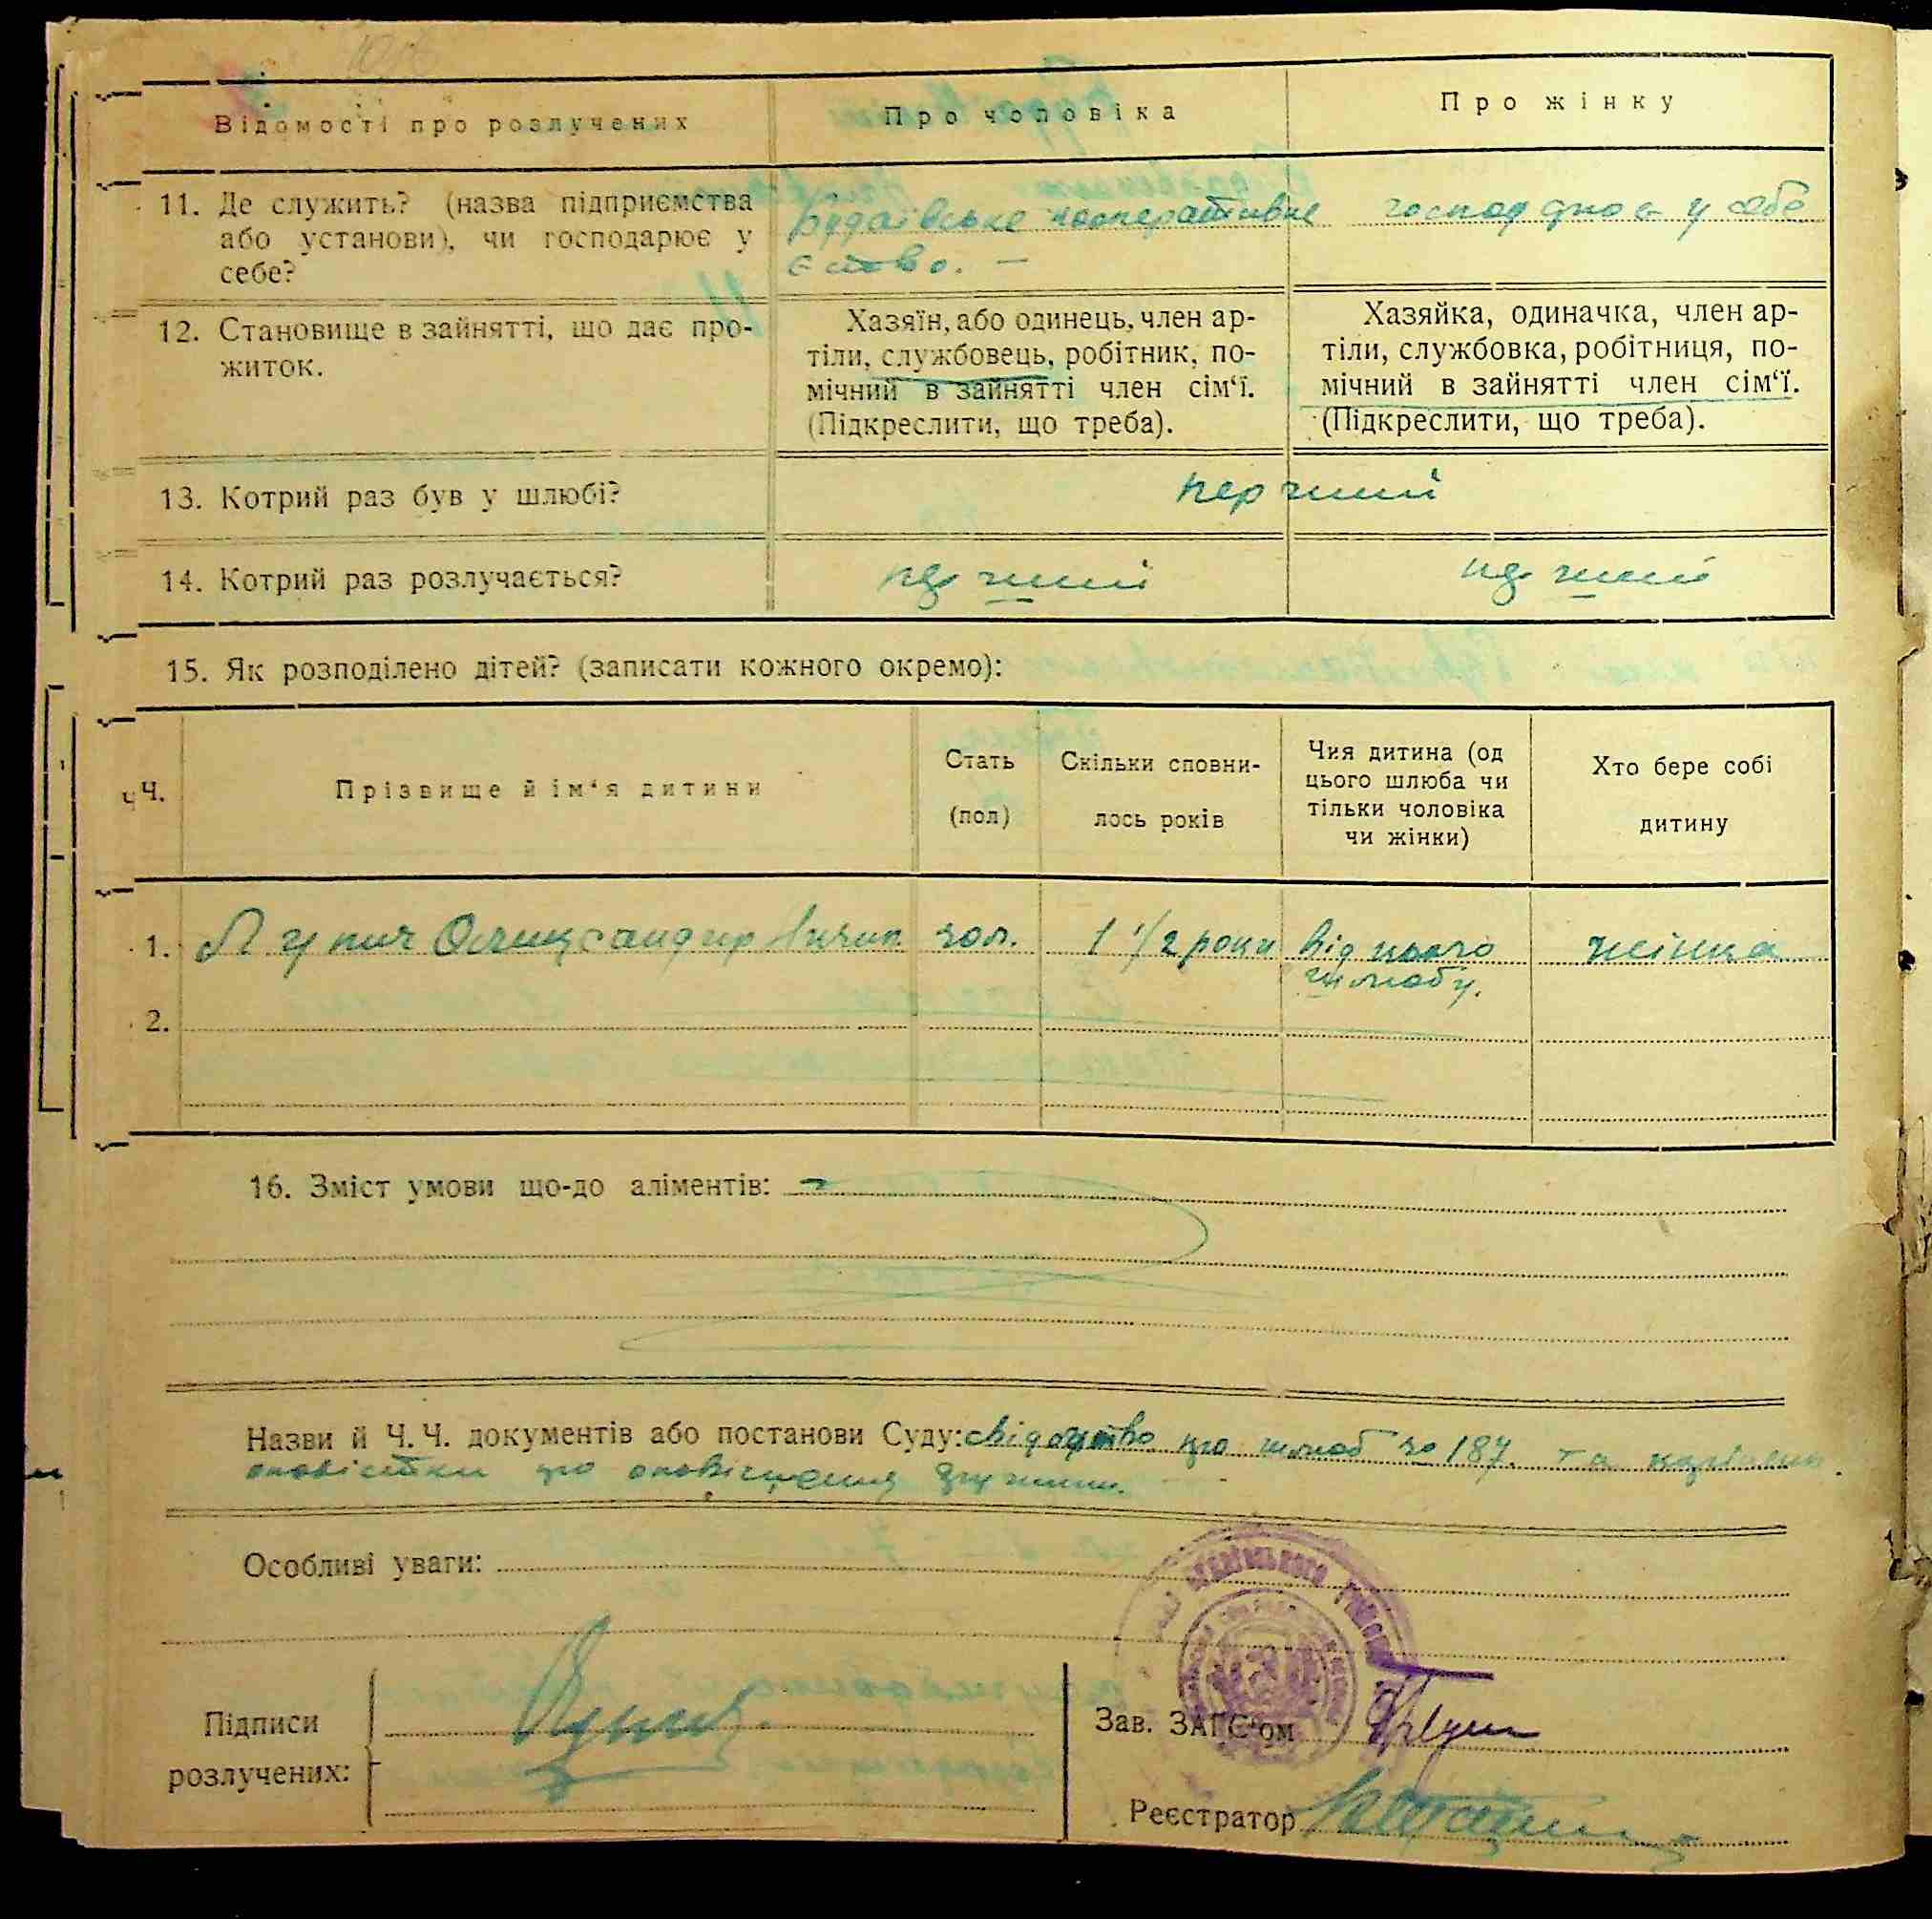 Відомості про розлучених
Про чоловіка
Про жінку
11. Де служить? (назва підприємства
або установи), чи господарює у
себе?
Рудаївське кооперативне
господарює у себе
12. Становище в зайнятті, що дає про-
житок.
Хазяїн, або одинець, член ар-
тіли, службовець, робітник, по-
мічний в зайнятті член сім‘ї.
(Підкреслити, що треба).
Хазяйка, одиначка, член ар-
тіли, службовка, робітниця, по-
мічний в зайнятті член сім‘ї.
(Підкреслити, що треба).
13. Котрий раз був у шлюбі?
перший
14. Котрий раз розлучається?
перший
перший
15. Як розподілено дітей? (записати кожного окремо):
чЧ.
Прізвище й ім‘я дитини
Стать
(пол)
Скільки сповни-
лось років
Чия дитина (од
цього шлюба чи
тільки чоловіка
чи жінки)
Хто бере собі
дитину
1. Лупич Олександр чол. 1 1/2 роки від цього жінка
шлюбу.
2.
16. Зміст умови що-до аліментів:
Назви й Ч. Ч. документів або постанови Суду: свідоцтво про шлюб за 187. та
оповістки про оповіщення дружини.
Особливі уваги:
Підписи
розлучених:
Зав. ЗАГС‘ом
Реєстратор